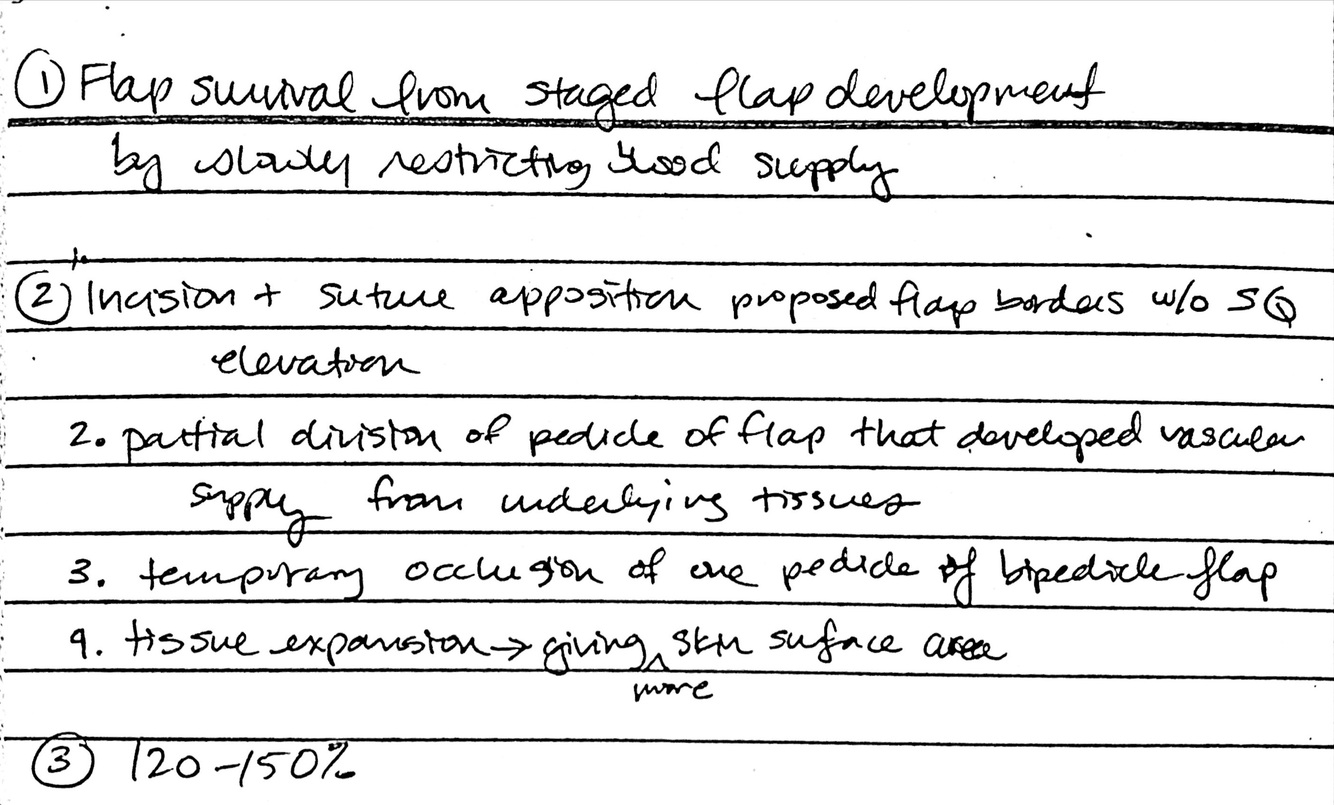 ① Flap survival from staged flap development
by slowly restricting blood supply
1.
② Incision + suture apposition proposed flap borders w/o SQ
elevation
2. partial division of pedicle of flap that developed vascular
supply from underlying tissues
3. temporary occlusion of one pedicle of bipedicle flap
4. tissue expansion → giving ^ skin surface area
more
③ 120-150%